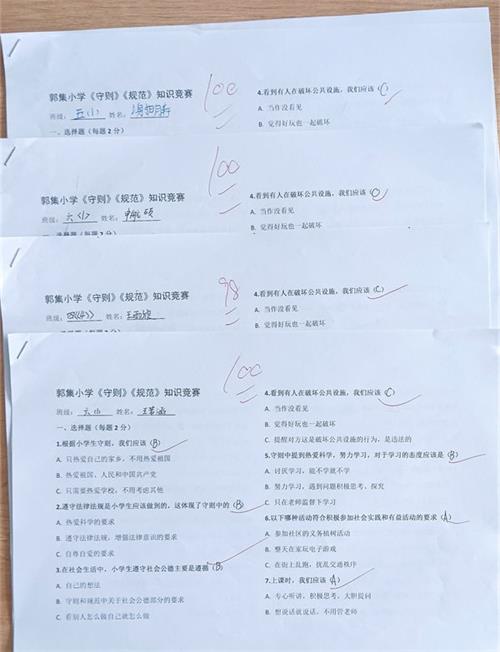 郭集小学《守则》《规范》知识竞赛
100
班级：五(1) 姓名：
一、选择题（每题2分）
4.看到有人在破坏公共设施，我们应该（C）
A. 当作没看见
B. 觉得好玩也一起破坏
郭集小学《守则》《规范》知识竞赛
100
班级：六(1) 姓名：
一、选择题（每题2分）
4.看到有人在破坏公共设施，我们应该（C）
A. 当作没看见
B. 觉得好玩也一起破坏
郭集小学《守则》《规范》知识竞赛
98
班级： 姓名：
4.看到有人在破坏公共设施，我们应该（C）
A. 当作没看见
B. 觉得好玩也一起破坏
郭集小学《守则》《规范》知识竞赛
100
班级：六(1) 姓名：
一、选择题（每题2分）
1.根据小学生守则，我们应该（B）
A. 只热爱自己的家乡，不用热爱祖国
B. 热爱祖国、人民和中国共产党
C. 只需要热爱学校，不用考虑其他
2.遵守法律法规是小学生应该做到的，这体现了守则中的（B）
A. 热爱科学的要求
B. 遵守法律法规，增强法律意识的要求
C. 自尊自爱的要求
3.在社会生活中，小学生遵守社会公德主要是遵循（B）
A. 自己的想法
B. 守则和规范中关于社会公德部分的要求
C. 看别人怎么做自己就怎么做
4.看到有人在破坏公共设施，我们应该（C）
A. 当作没看见
B. 觉得好玩也一起破坏
C. 提醒对方这是破坏公共设施的行为，是违法的
5.守则中提到热爱科学，努力学习，对于学习的态度应该是（B）
A. 讨厌学习，能不学就不学
B. 努力学习，遇到问题积极思考、探究
C. 只在老师监督下学习
6.以下哪种活动符合积极参加社会实践和有益活动的要求（A）
A. 参加社区的义务植树活动
B. 整天在家玩电子游戏
C. 在街上乱跑，扰乱交通秩序
7.上课时，我们应该（A）
A. 专心听讲，积极思考，大胆提问
B. 想说话就说话，不用管老师